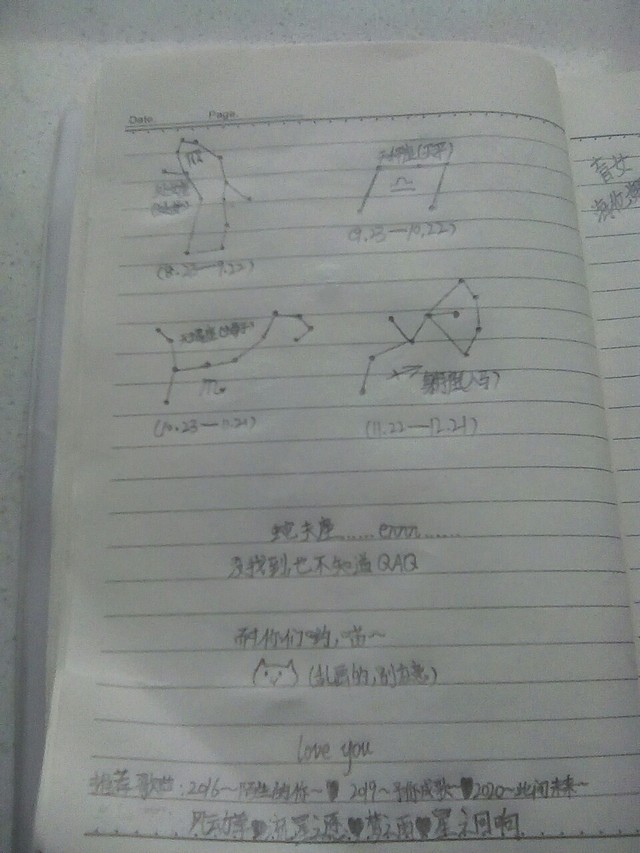 Date. Page.
♍
处女座
(8.23—9.22)
天秤座(天平)
♎
(9.23—10.22)
天蝎座
♏
(10.23—11.21)
射手座(人马)
(11.22—12.21)
蛇夫座......errr......
没找到,也不知道QAQ
耐你们哟,喵~
(乱画的,别在意)
love you
推荐歌曲:2016~陌生的你~♥ 2019~予你成歌~♥2020~此间未来~
♥ ♥梦之雨♥星之回响